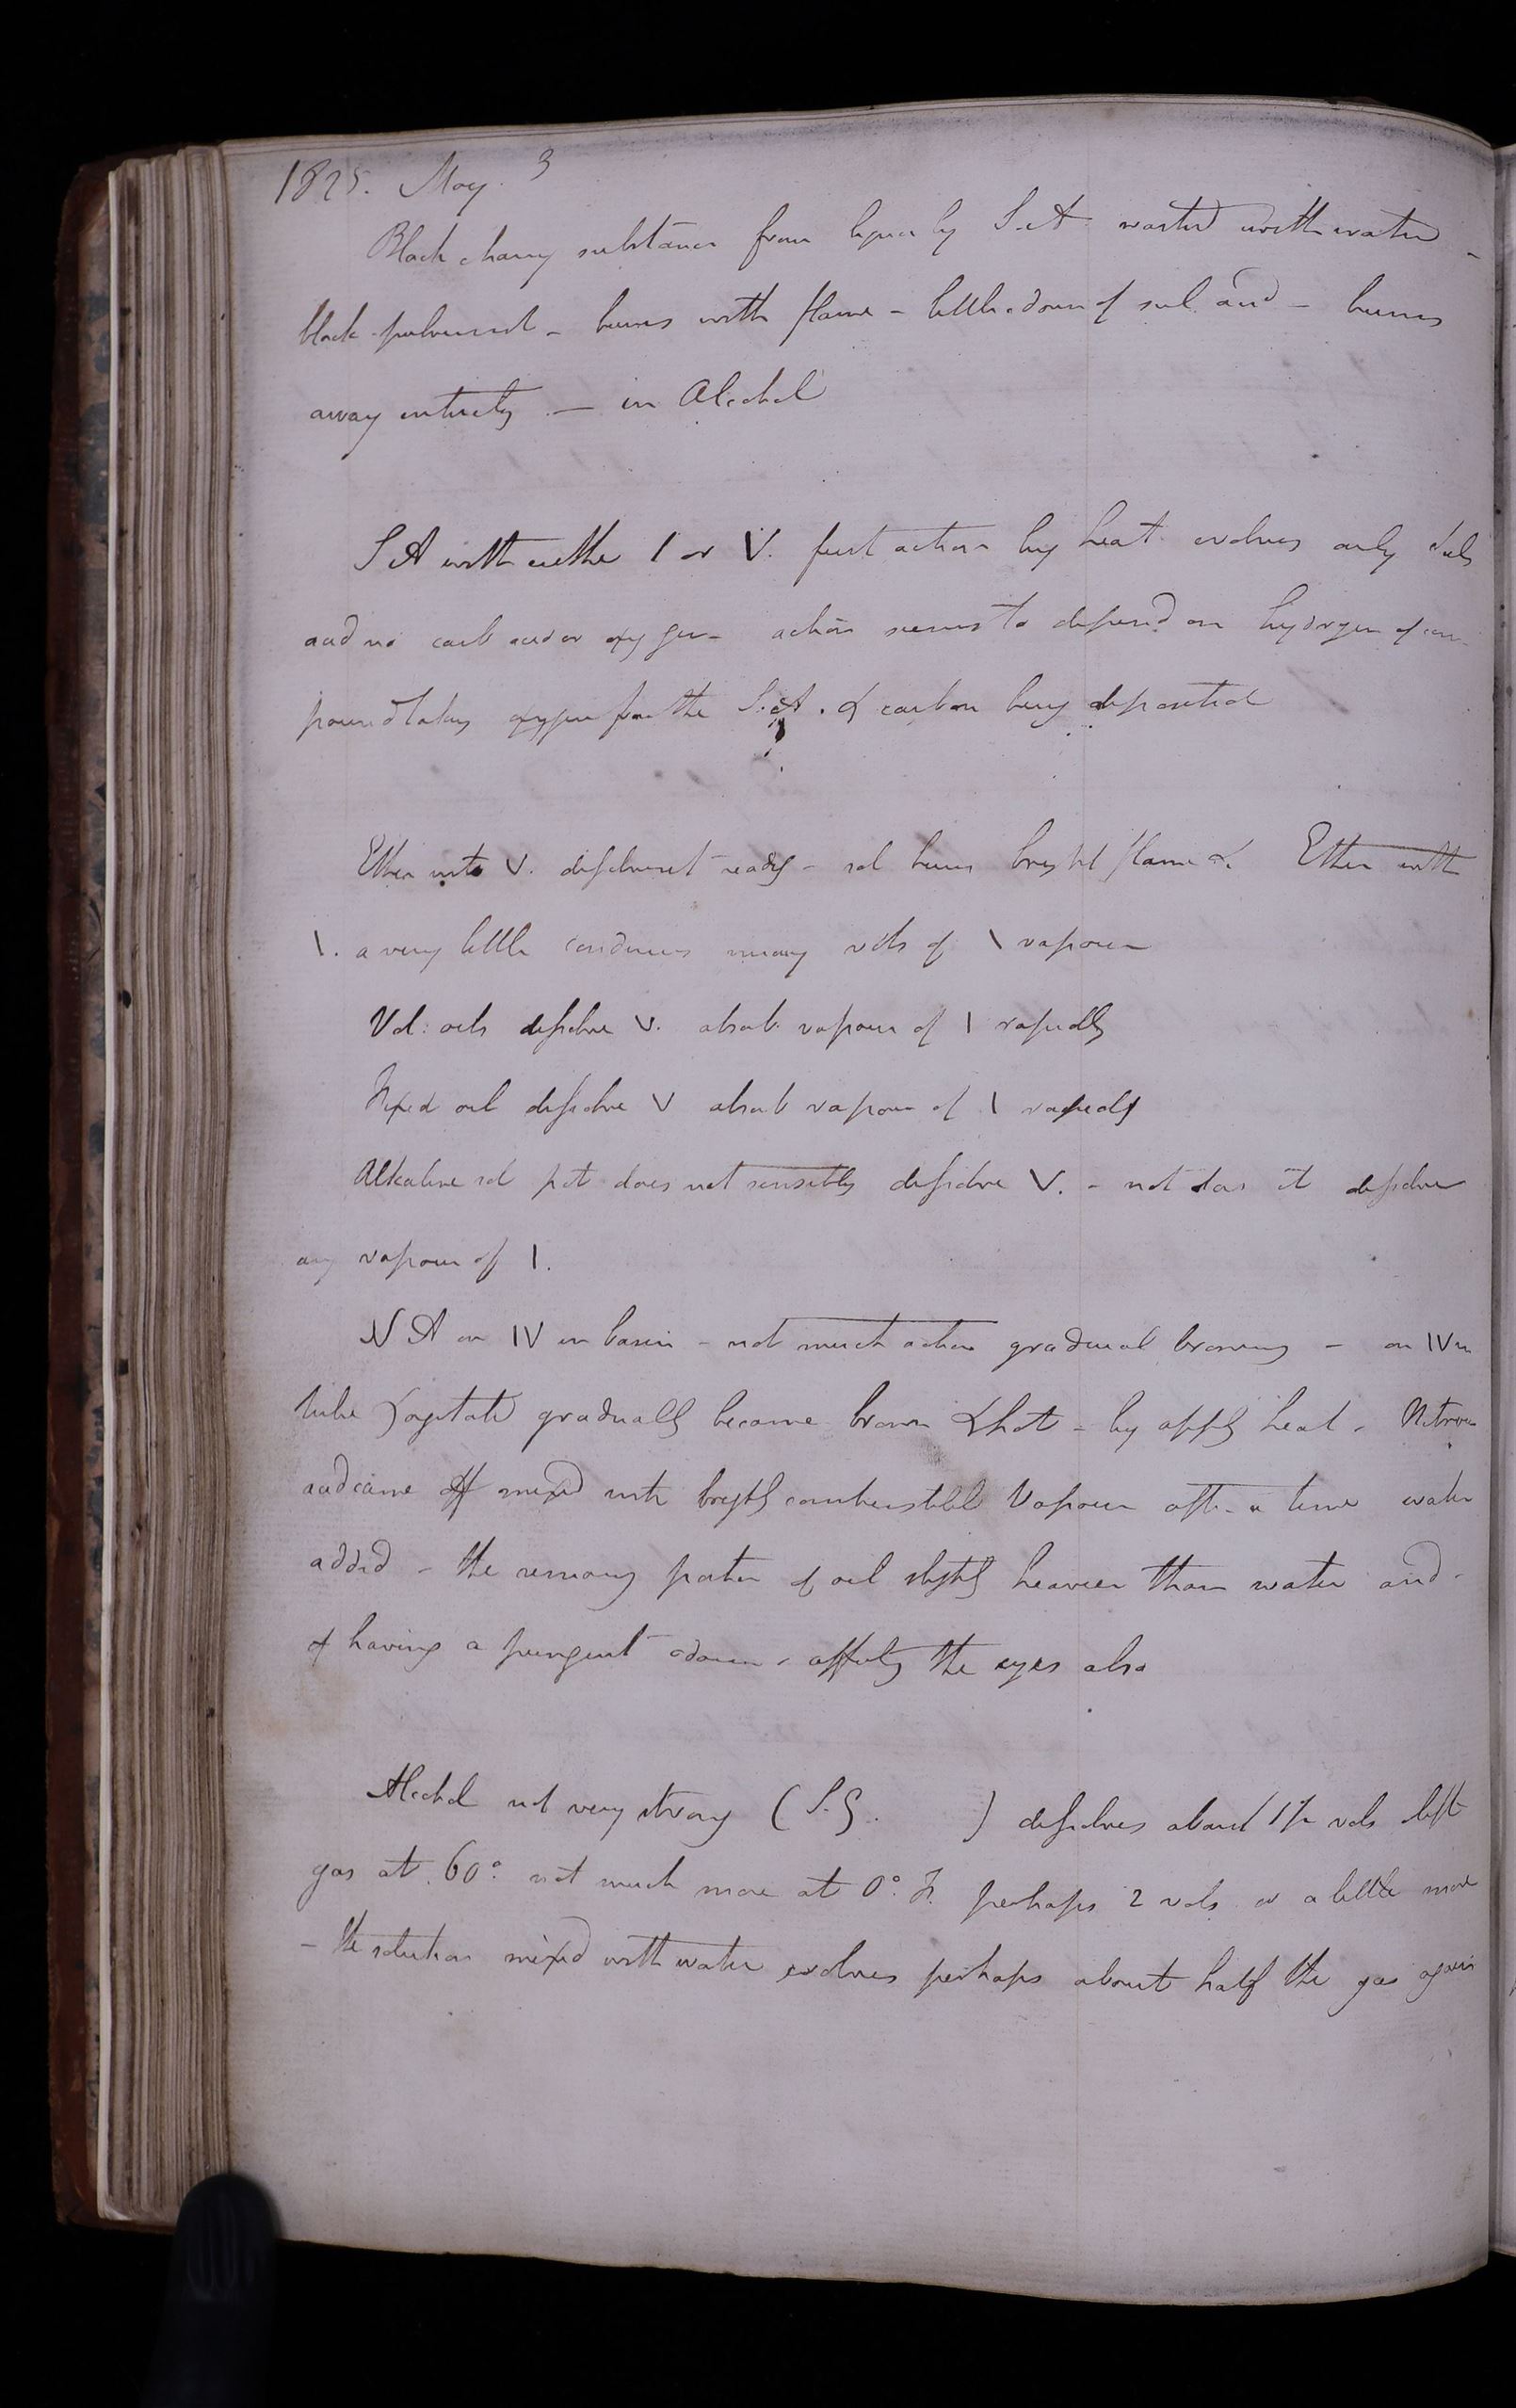 1825. May. 3
Black charry substance from liquor by S.A. washed with water -
black pulverent - burns with flame - little odour of sul. acid - burns
away entirely - in Alcohol
S A with either \ or V. first action by heat evolves only Sul
acid no carb acid or oxygen - action seems to depend on hydrogen of com-
pound taking oxygen from the S.A. & carbon being deposited
Ether with V. dissolves it readily - sol burns bright flame &. Ether with
\. a very little condenses many vols of \ vapour
Vol: oils dissolve V. absorb vapour of \ rapidly
Fixed oil dissolve V absorb vapour of \ rapidly
Alkaline sol pot does not sensibly dissolve V. - not does it dissolve
any vapour of \.
N A on \V in basin - not much action gradual browning - on \V in
tube & agitated gradually became brown & hot - by apply heat - Nitrous
acid came off mixed with brightly combustible Vapour after a time water
added - the remaing portion of oil slightly heavier than water and
of having a pungent odour - affectg the eyes also
Alcohol not very strong ( S.G. ) dissolves about 1 1/2 vols
gas at 60°. not much more at 0°. F. perhaps 2 vols or a little more
- the solution mixed with water evolves perhaps about half the gas again